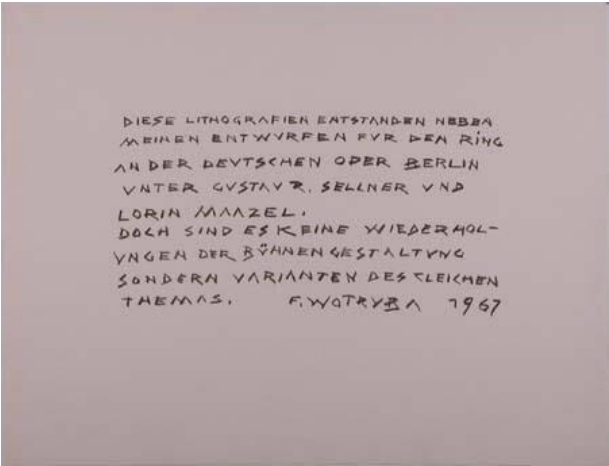 DIESE LITHOGRAFIEN ENTSTANDEN NEBEN
MEINEN ENTWVRFEN FVR DEN RING
AN DER DEVTSCHEN OPER BERLIN
VNTER GVSTAV R. SELLNER VND
LORIN MAAZEL.
DOCH SIND ES KEINE WIEDERHOL-
VNGEN DER BÜHNENGESTALTVNG
SONDERN VARIANTEN DES GLEICHEN
THEMAS. F. WOTRVBA 1967